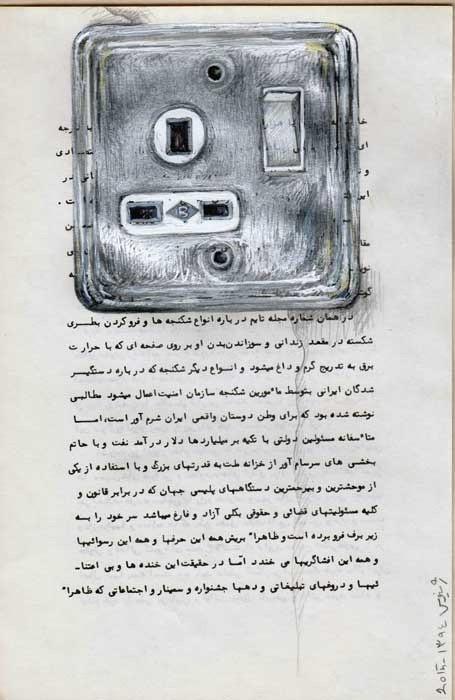 در همان شماره مجله تایم در باره انواع شکنجه ها و فرو کردن بطـــری
شکسته در مقعد زندانی و سوزاندن بدن او بر روی صفحه ای که با حرارت
برق به تدریج گرم و داغ میشود و انـواع دیگر شکنجه که در باره دستگیـــر
شدگان ایرانی بتوسط مأمورین شکنجه سازمان امنیت اعمال میشود مطالبی
نوشته شده بود که برای وطن دوستان واقعی ایران شرم آور است، امـــا
متأسفانه مسئولین دولتی با تکیه بر میلیاردها دلار در آمد نفت و با حاتم
بخشی های سرسام آور از خزانه ملت به قدرتهای بزرگ و با استفاده از یکی
از موحشترین و بیرحمترین دستگاههای پلیسی جهان که در برابر قانون و
کلیه مسئولیتهای قضائی و حقوقی بکلی آزاد و فارغ میباشد سر خود را بـه
زیر برف فرو برده است و ظاهراً بریش همه این حرفها و همه این رسوائیها
و همه این افشاگریها می خندد امّا در حقیقت این خنده ها و بی اعتنا-
ئیها و دروغهای تبلیغاتی و دهها جشنواره و سمینار و اجتماعاتی که ظاهراً
2015-۱۳۹٤